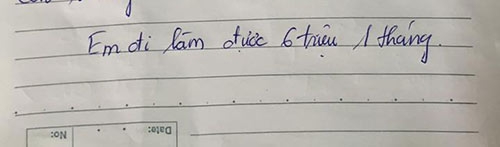 Em đi làm được 6 triệu 1 tháng.
Date:
No: